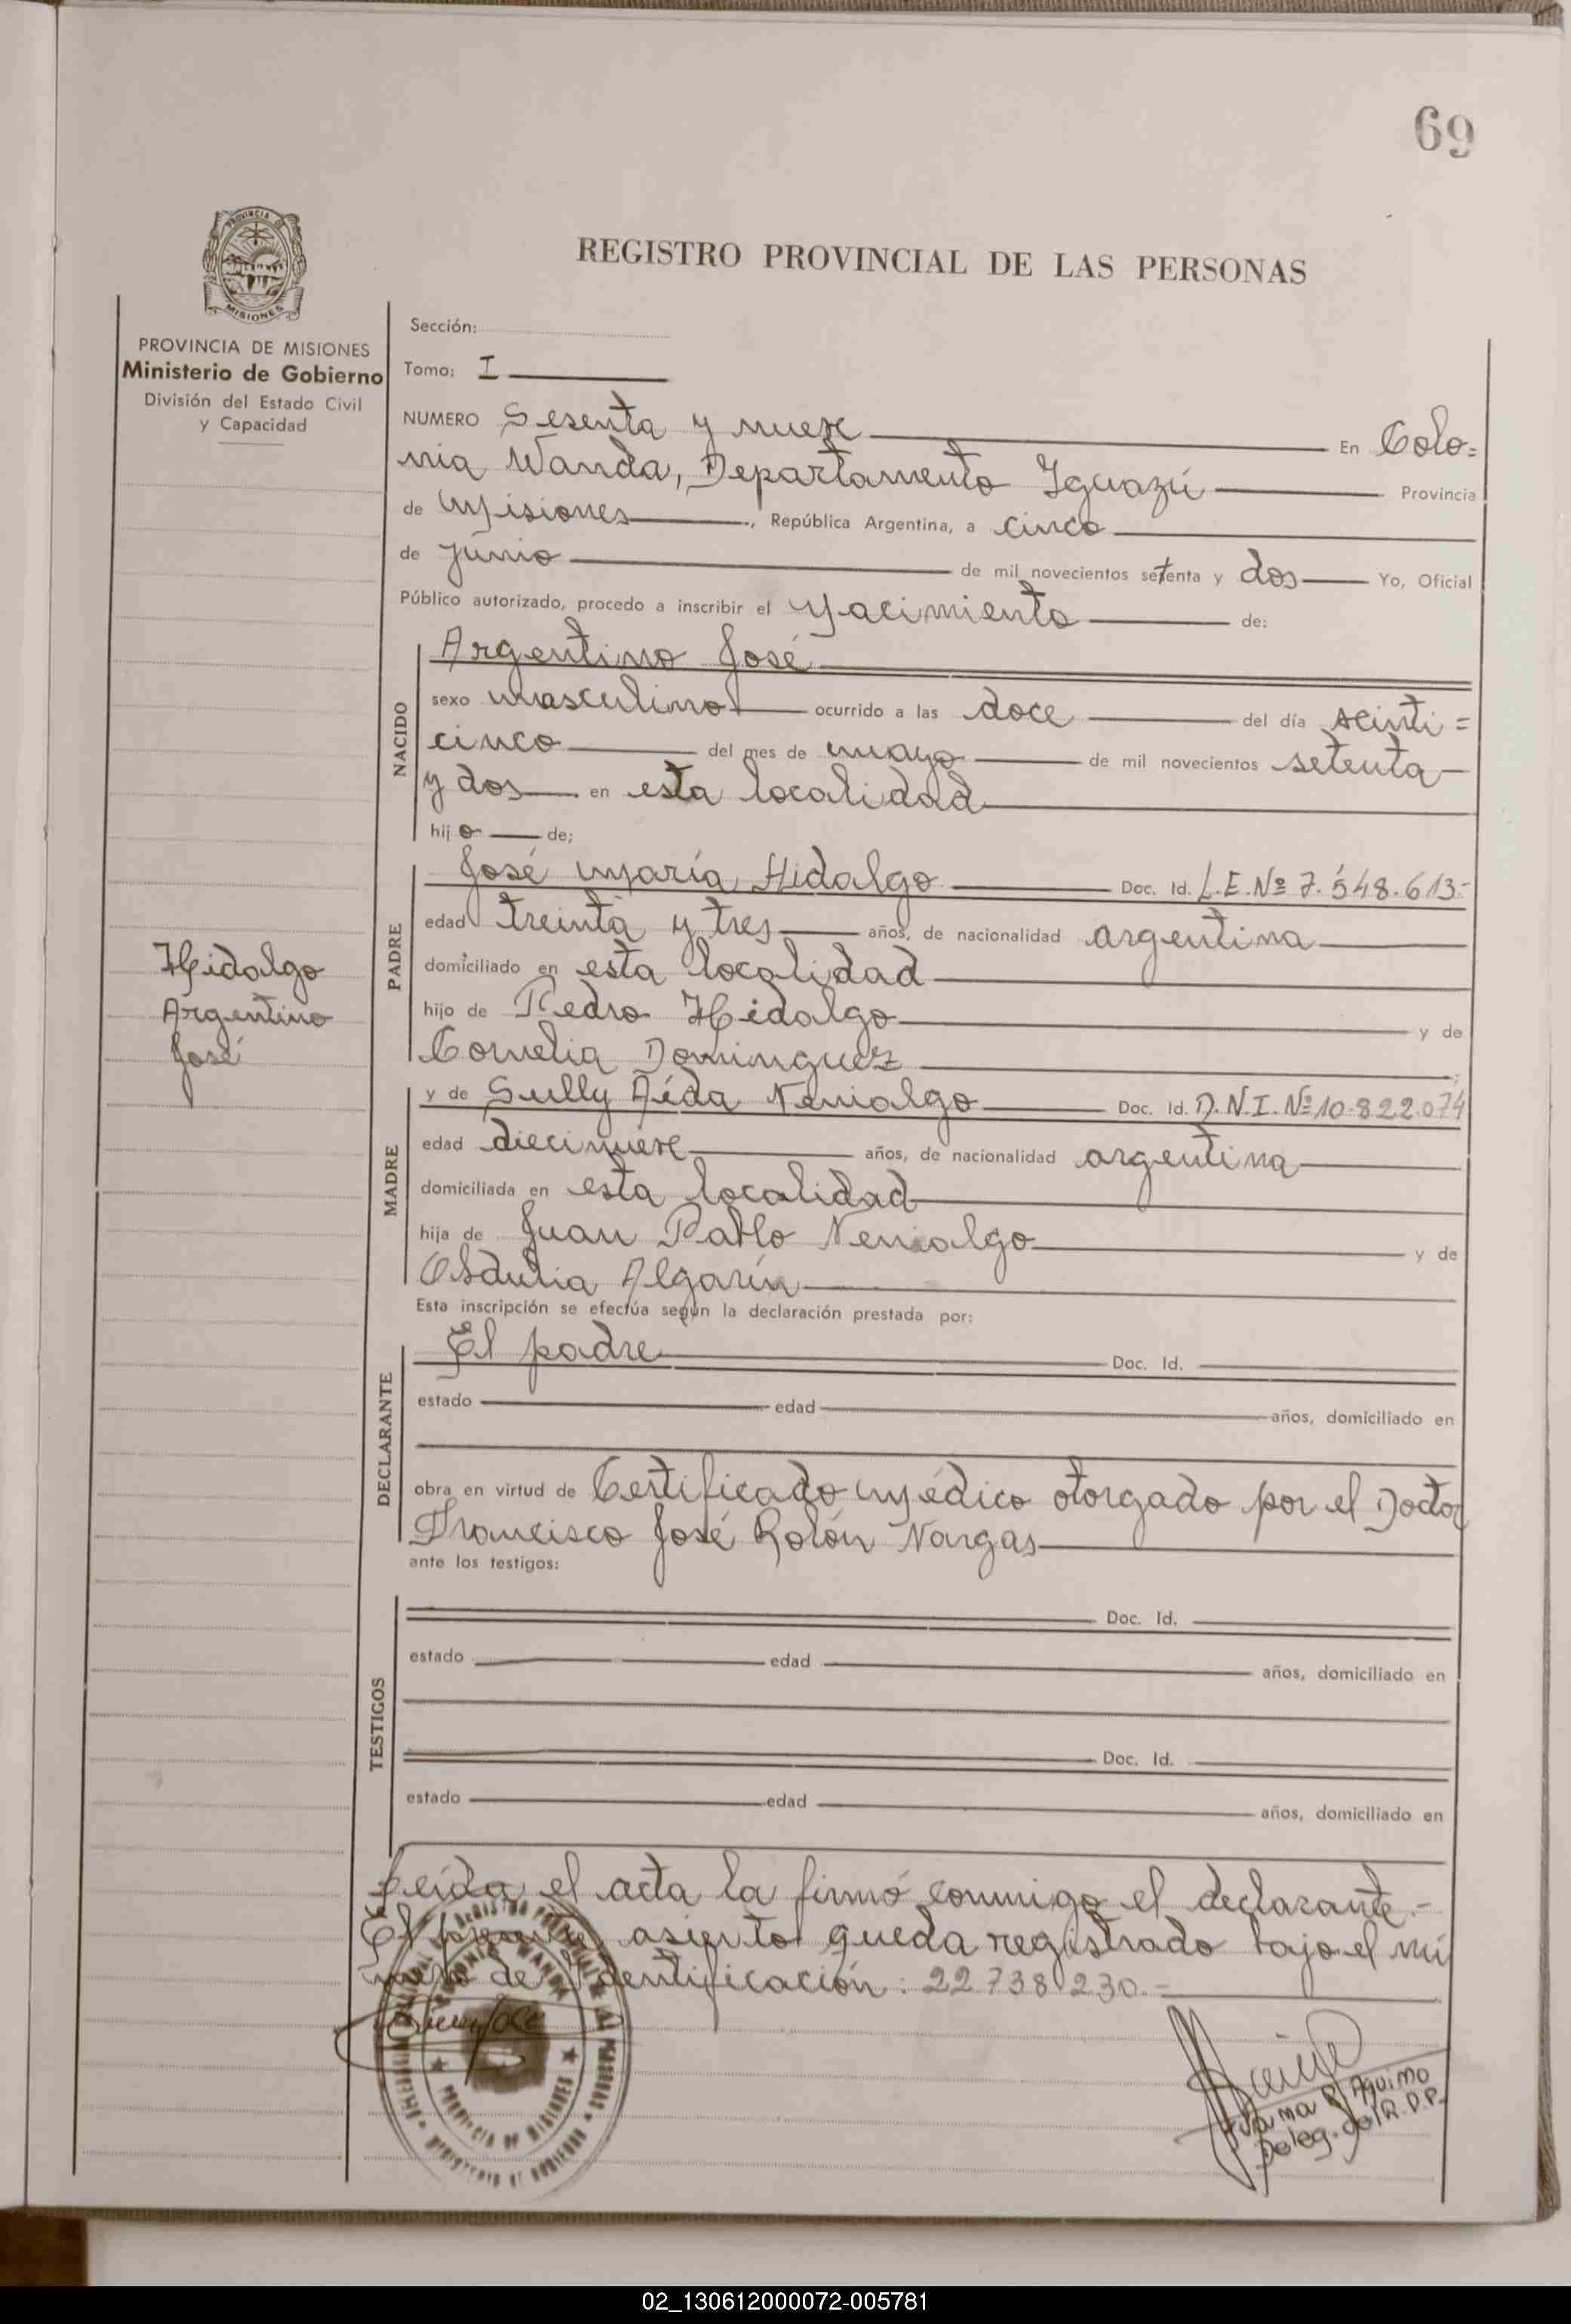 69
PROVINCIA DE
MISIONES
REGISTRO PROVINCIAL DE LAS PERSONAS
PROVINCIA DE MISIONES
Ministerio de Gobierno
División del Estado Civil
y Capacidad
Sección:
Tomo: I
NUMERO Sesenta y nueve En Colo=
nia Wanda, Departamento Iguazú Provincia
de Misiones, República Argentina, a cinco
de junio de mil novecientos setenta y dos Yo, Oficial
Público autorizado, procedo a inscribir el Nacimiento de:
NACIDO
Argentino José
sexo masculino ocurrido a las doce del día veinti=
cinco del mes de mayo de mil novecientos setenta
y dos en esta localidad
hijo de;
PADRE
José María Hidalgo Doc. Id. L.E.Nº 7.548.613.-
edad treinta y tres años, de nacionalidad argentina
domiciliado en esta localidad
hijo de Pedro Hidalgo y de
Cornelia Dominguez;
Hidalgo
Argentino
José
MADRE
y de Sully Aída Venialgo Doc. Id. D.N.I. Nº 10.822.074
edad diecinueve años, de nacionalidad argentina
domiciliada en esta localidad
hija de Juan Pablo Venialgo y de
Obdulia Algarín
Esta inscripción se efectúa según la declaración prestada por:
DECLARANTE
El padre Doc. Id.
estado edad años, domiciliado en
obra en virtud de Certificado Médico otorgado por el Doctor
Francisco José Rolón Vargas
ante los testigos:
TESTIGOS
Doc. Id.
estado edad años, domiciliado en
Doc. Id.
estado edad años, domiciliado en
Leída el acta la firmó conmigo el declarante.-
El presente asiento queda registrado bajo el nú
mero de identificación: 22.738.230.-
COLONIA WANDA
PROVINCIA DE MISIONES
R. Aquimo
Deleg. del R.D.P.
02_130612000072-005781